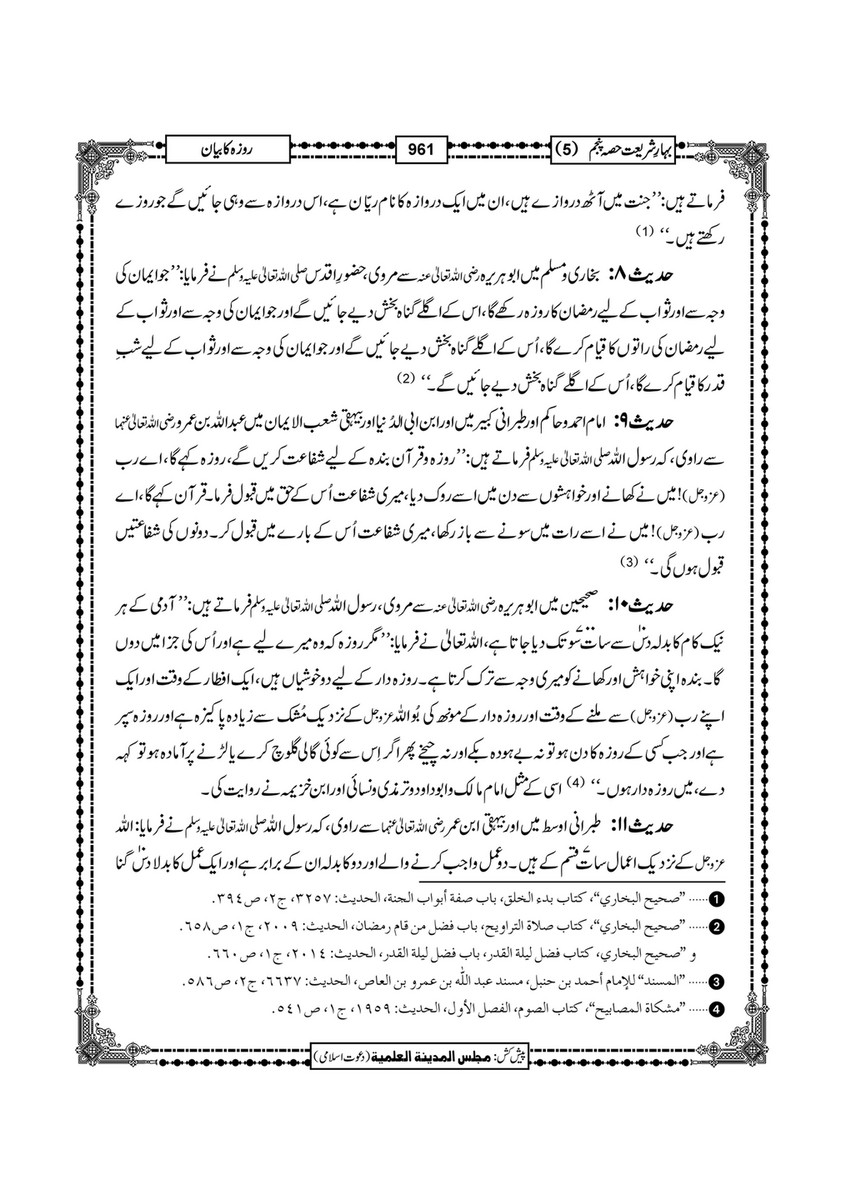 بہارِ شریعت حصہ پنجم (5)
961
روزہ کا بیان
فرماتے ہیں: ’’جنت میں آٹھ دروازے ہیں، ان میں ایک دروازہ کا نام ریّان ہے، اس دروازہ سے وہی جائیں گے جو روزے
رکھتے ہیں۔‘‘ (1)
حدیث ۸: بخاری و مسلم میں ابوہریرہ رضی اللہ تعالیٰ عنہ سے مروی، حضورِ اقدس صلی اللہ تعالیٰ علیہ وسلم نے فرمایا: ’’جو ایمان کی
وجہ سے اور ثواب کے لیے رمضان کا روزہ رکھے گا، اس کے اگلے گناہ بخش دیے جائیں گے اور جو ایمان کی وجہ سے اور ثواب کے
لیے رمضان کی راتوں کا قیام کرے گا، اُس کے اگلے گناہ بخش دیے جائیں گے اور جو ایمان کی وجہ سے اور ثواب کے لیے شبِ
قدر کا قیام کرے گا، اُس کے اگلے گناہ بخش دیے جائیں گے۔‘‘ (2)
حدیث ۹: امام احمد و حاکم اور طبرانی کبیر میں اور ابن ابی الدُنیا اور بیہقی شعب الایمان میں عبداللہ بن عمرو رضی اللہ تعالیٰ عنہما
سے راوی، کہ رسول اللہ صلی اللہ تعالیٰ علیہ وسلم فرماتے ہیں: ’’روزہ و قرآن بندہ کے لیے شفاعت کریں گے، روزہ کہے گا، اے رب
(عزوجل)! میں نے کھانے اور خواہشوں سے دن میں اسے روک دیا، میری شفاعت اُس کے حق میں قبول فرما۔ قرآن کہے گا، اے
رب (عزوجل)! میں نے اسے رات میں سونے سے باز رکھا، میری شفاعت اُس کے بارے میں قبول کر۔ دونوں کی شفاعتیں
قبول ہوں گی۔‘‘ (3)
حدیث ۱۰: صحیحین میں ابوہریرہ رضی اللہ تعالیٰ عنہ سے مروی، رسول اللہ صلی اللہ تعالیٰ علیہ وسلم فرماتے ہیں: ’’آدمی کے ہر
نیک کام کا بدلہ دس سے سات سو تک دیا جاتا ہے، اللہ تعالیٰ نے فرمایا: ’’مگر روزہ کہ وہ میرے لیے ہے اور اُس کی جزا میں دوں
گا۔ بندہ اپنی خواہش اور کھانے کو میری وجہ سے ترک کرتا ہے۔ روزہ دار کے لیے دو خوشیاں ہیں، ایک افطار کے وقت اور ایک
اپنے رب (عزوجل) سے ملنے کے وقت اور روزہ دار کے مونھ کی بُو اللہ عزوجل کے نزدیک مُشک سے زیادہ پاکیزہ ہے اور روزہ سپر
ہے اور جب کسی کے روزہ کا دن ہو تو نہ بے ہودہ بکے اور نہ چیخے پھر اگر اِس سے کوئی گالی گلوچ کرے یا لڑنے پر آمادہ ہو تو کہہ
دے، میں روزہ دار ہوں۔‘‘ (4) اسی کے مثل امام مالک و ابوداود و ترمذی و نسائی اور ابن خزیمہ نے روایت کی۔
حدیث ۱۱: طبرانی اوسط میں اور بیہقی ابن عمر رضی اللہ تعالیٰ عنہما سے راوی، کہ رسول اللہ صلی اللہ تعالیٰ علیہ وسلم نے فرمایا: اللہ
عزوجل کے نزدیک اعمال سات قسم کے ہیں۔ دو عمل واجب کرنے والے اور دو کا بدلہ ان کے برابر ہے اور ایک عمل کا بدلا دس گنا
❶...... ”صحيح البخاري“، كتاب بدء الخلق، باب صفة أبواب الجنة، الحديث: ٣٢٥٧، ج٢، ص٣٩٤.
❷...... ”صحيح البخاري“، كتاب صلاة التراويح، باب فضل من قام رمضان، الحديث: ٢٠٠٩، ج١، ص٦٥٨.
و ”صحيح البخاري، كتاب فضل ليلة القدر، باب فضل ليلة القدر، الحديث: ٢٠١٤، ج١، ص٦٦٠.
❸...... ”المسند“ للإمام أحمد بن حنبل، مسند عبد الله بن عمرو بن العاص، الحديث: ٦٦٣٧، ج٢، ص٥٨٦.
❹...... ”مشكاة المصابيح“، كتاب الصوم، الفصل الأول، الحديث: ١٩٥٩، ج١، ص٥٤١.
پیش کش: مجلس المدينة العلمية (دعوت اسلامی)